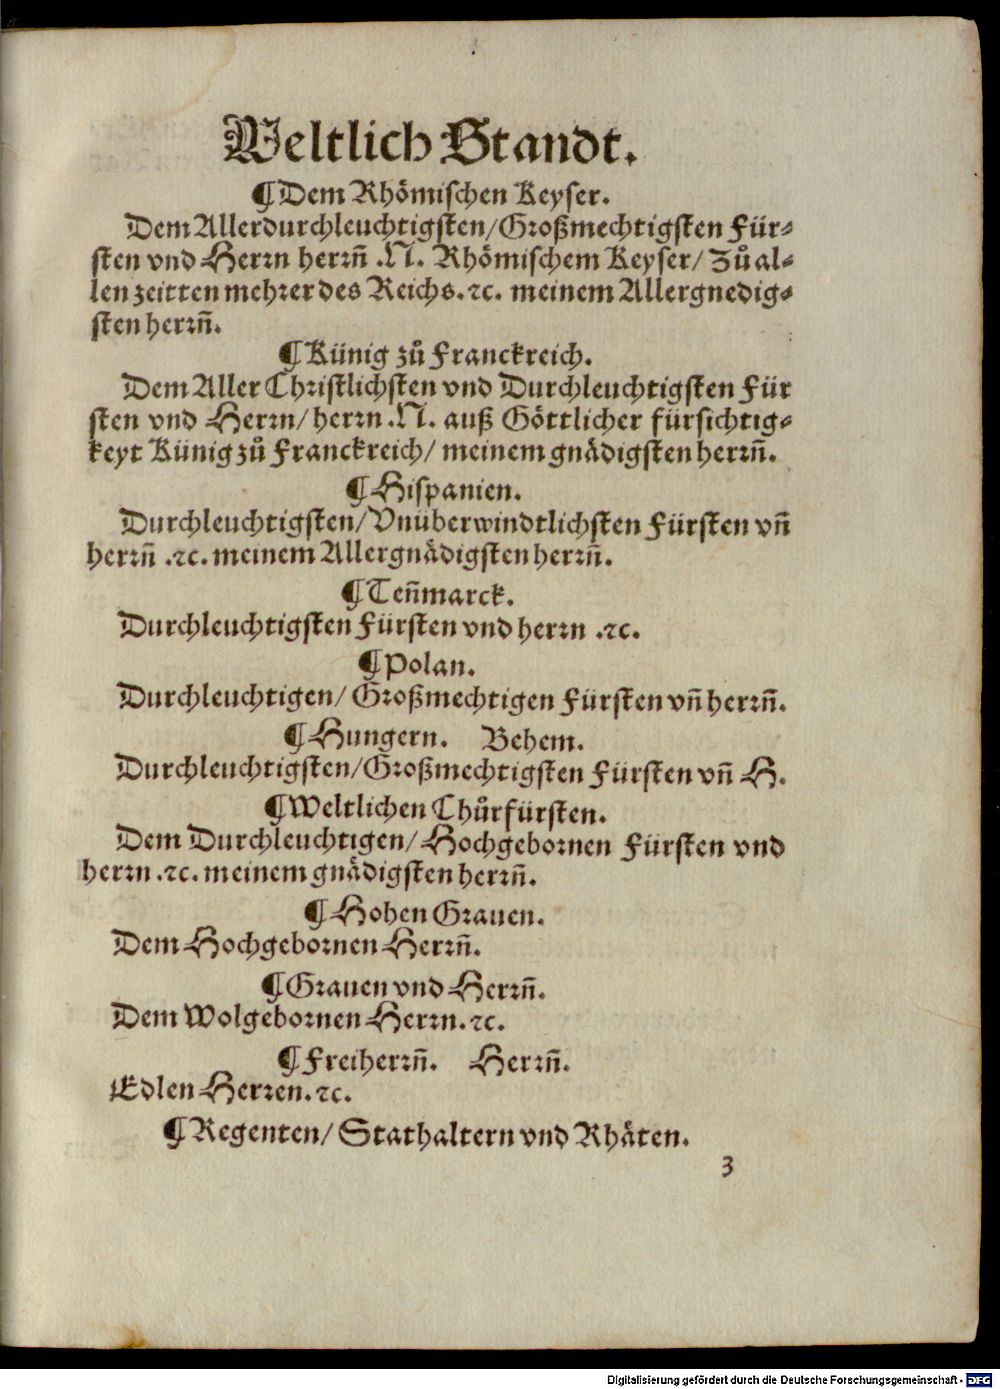 Weltlich Standt.
¶ Dem Rhömischen Keyser.
Dem Allerdurchleuchtigsten/ Großmechtigsten Für⸗
sten vnd Herrn herrn̄ .N. Rhömischem Keyser/ Zůal⸗
len zeitten mehrer des Reichs. ⁊c. meinem Allergnedig⸗
sten herrn̄.
¶ Künig zů Franckreich.
Dem Aller Christlichsten vnd Durchleuchtigsten Für
sten vnd Herrn/ herrn .N. auß Göttlicher fürsichtig⸗
keyt Künig zů Franckreich/ meinem gnädigsten herrn̄.
¶ Hispanien.
Durchleuchtigsten/ Vnüberwindtlichsten Fürsten vn̄
herrn̄ .⁊c. meinem Allergnädigsten herrn̄.
¶ Ten̄marck.
Durchleuchtigsten Fürsten vnd herrn .⁊c.
¶ Polan.
Durchleuchtigen/ Großmechtigen Fürsten vn̄ herrn̄.
¶ Hungern. Behem.
Durchleuchtigsten/ Großmechtigsten Fürsten vn̄ H.
¶ Weltlichen Chůrfürsten.
Dem Durchleuchtigen/ Hochgebornen Fürsten vnd
herrn .⁊c. meinem gnädigsten herrn̄.
¶ Hohen Grauen.
Dem Hochgebornen Herrn̄.
¶ Grauen vnd Herrn̄.
Dem Wolgebornen Herrn. ⁊c.
¶ Freiherrn̄. Herrn̄.
Edlen Herren. ⁊c.
¶ Regenten/ Stathaltern vnd Rhäten.
3
Digitalisierung gefördert durch die Deutsche Forschungsgemeinschaft - DFG